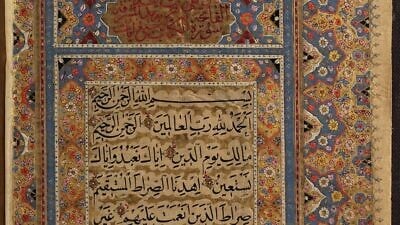 بِسْمِ اللهِ الرَّحْمٰنِ الرَّحِيمِ
اَلْحَمْدُ لِلّٰهِ رَبِّ الْعَالَمِينَ الرَّحْمٰنِ الرَّحِيمِ
مَالِكِ يَوْمِ الدِّينِ اِيَّاكَ نَعْبُدُ وَاِيَّاكَ
نَسْتَعِينُ اِهْدِنَا الصِّرَاطَ الْمُسْتَقِيمَ
صِرَاطَ الَّذِينَ اَنْعَمْتَ عَلَيْهِمْ غَيْرِ